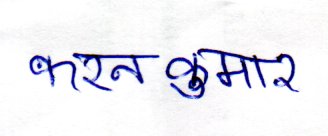 करन कुमार